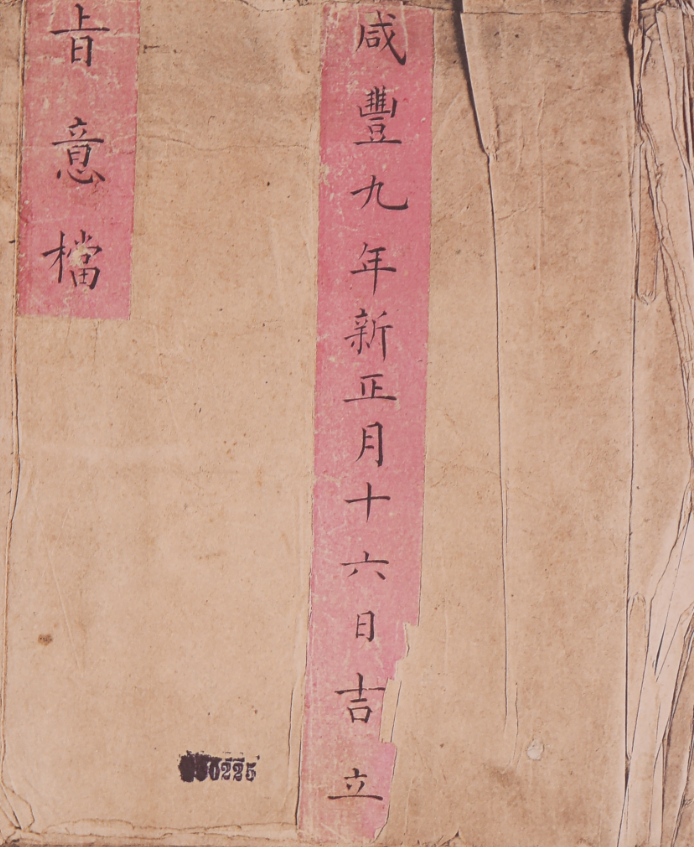 咸豐九年新正月十六日吉立
旨意檔
0225